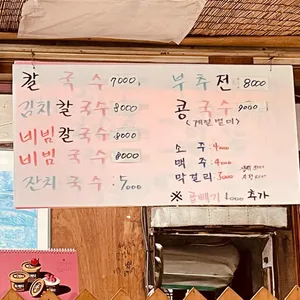 칼국수 7000
김치칼국수 8000
비빔칼국수 8000
비빔국수 8000
잔치국수 : 5000
부추전 8000
콩국수 9000
(계절별미)
소주 : 4000
맥주 : 4000
막걸리 : 3000
※ 곱빼기 추가